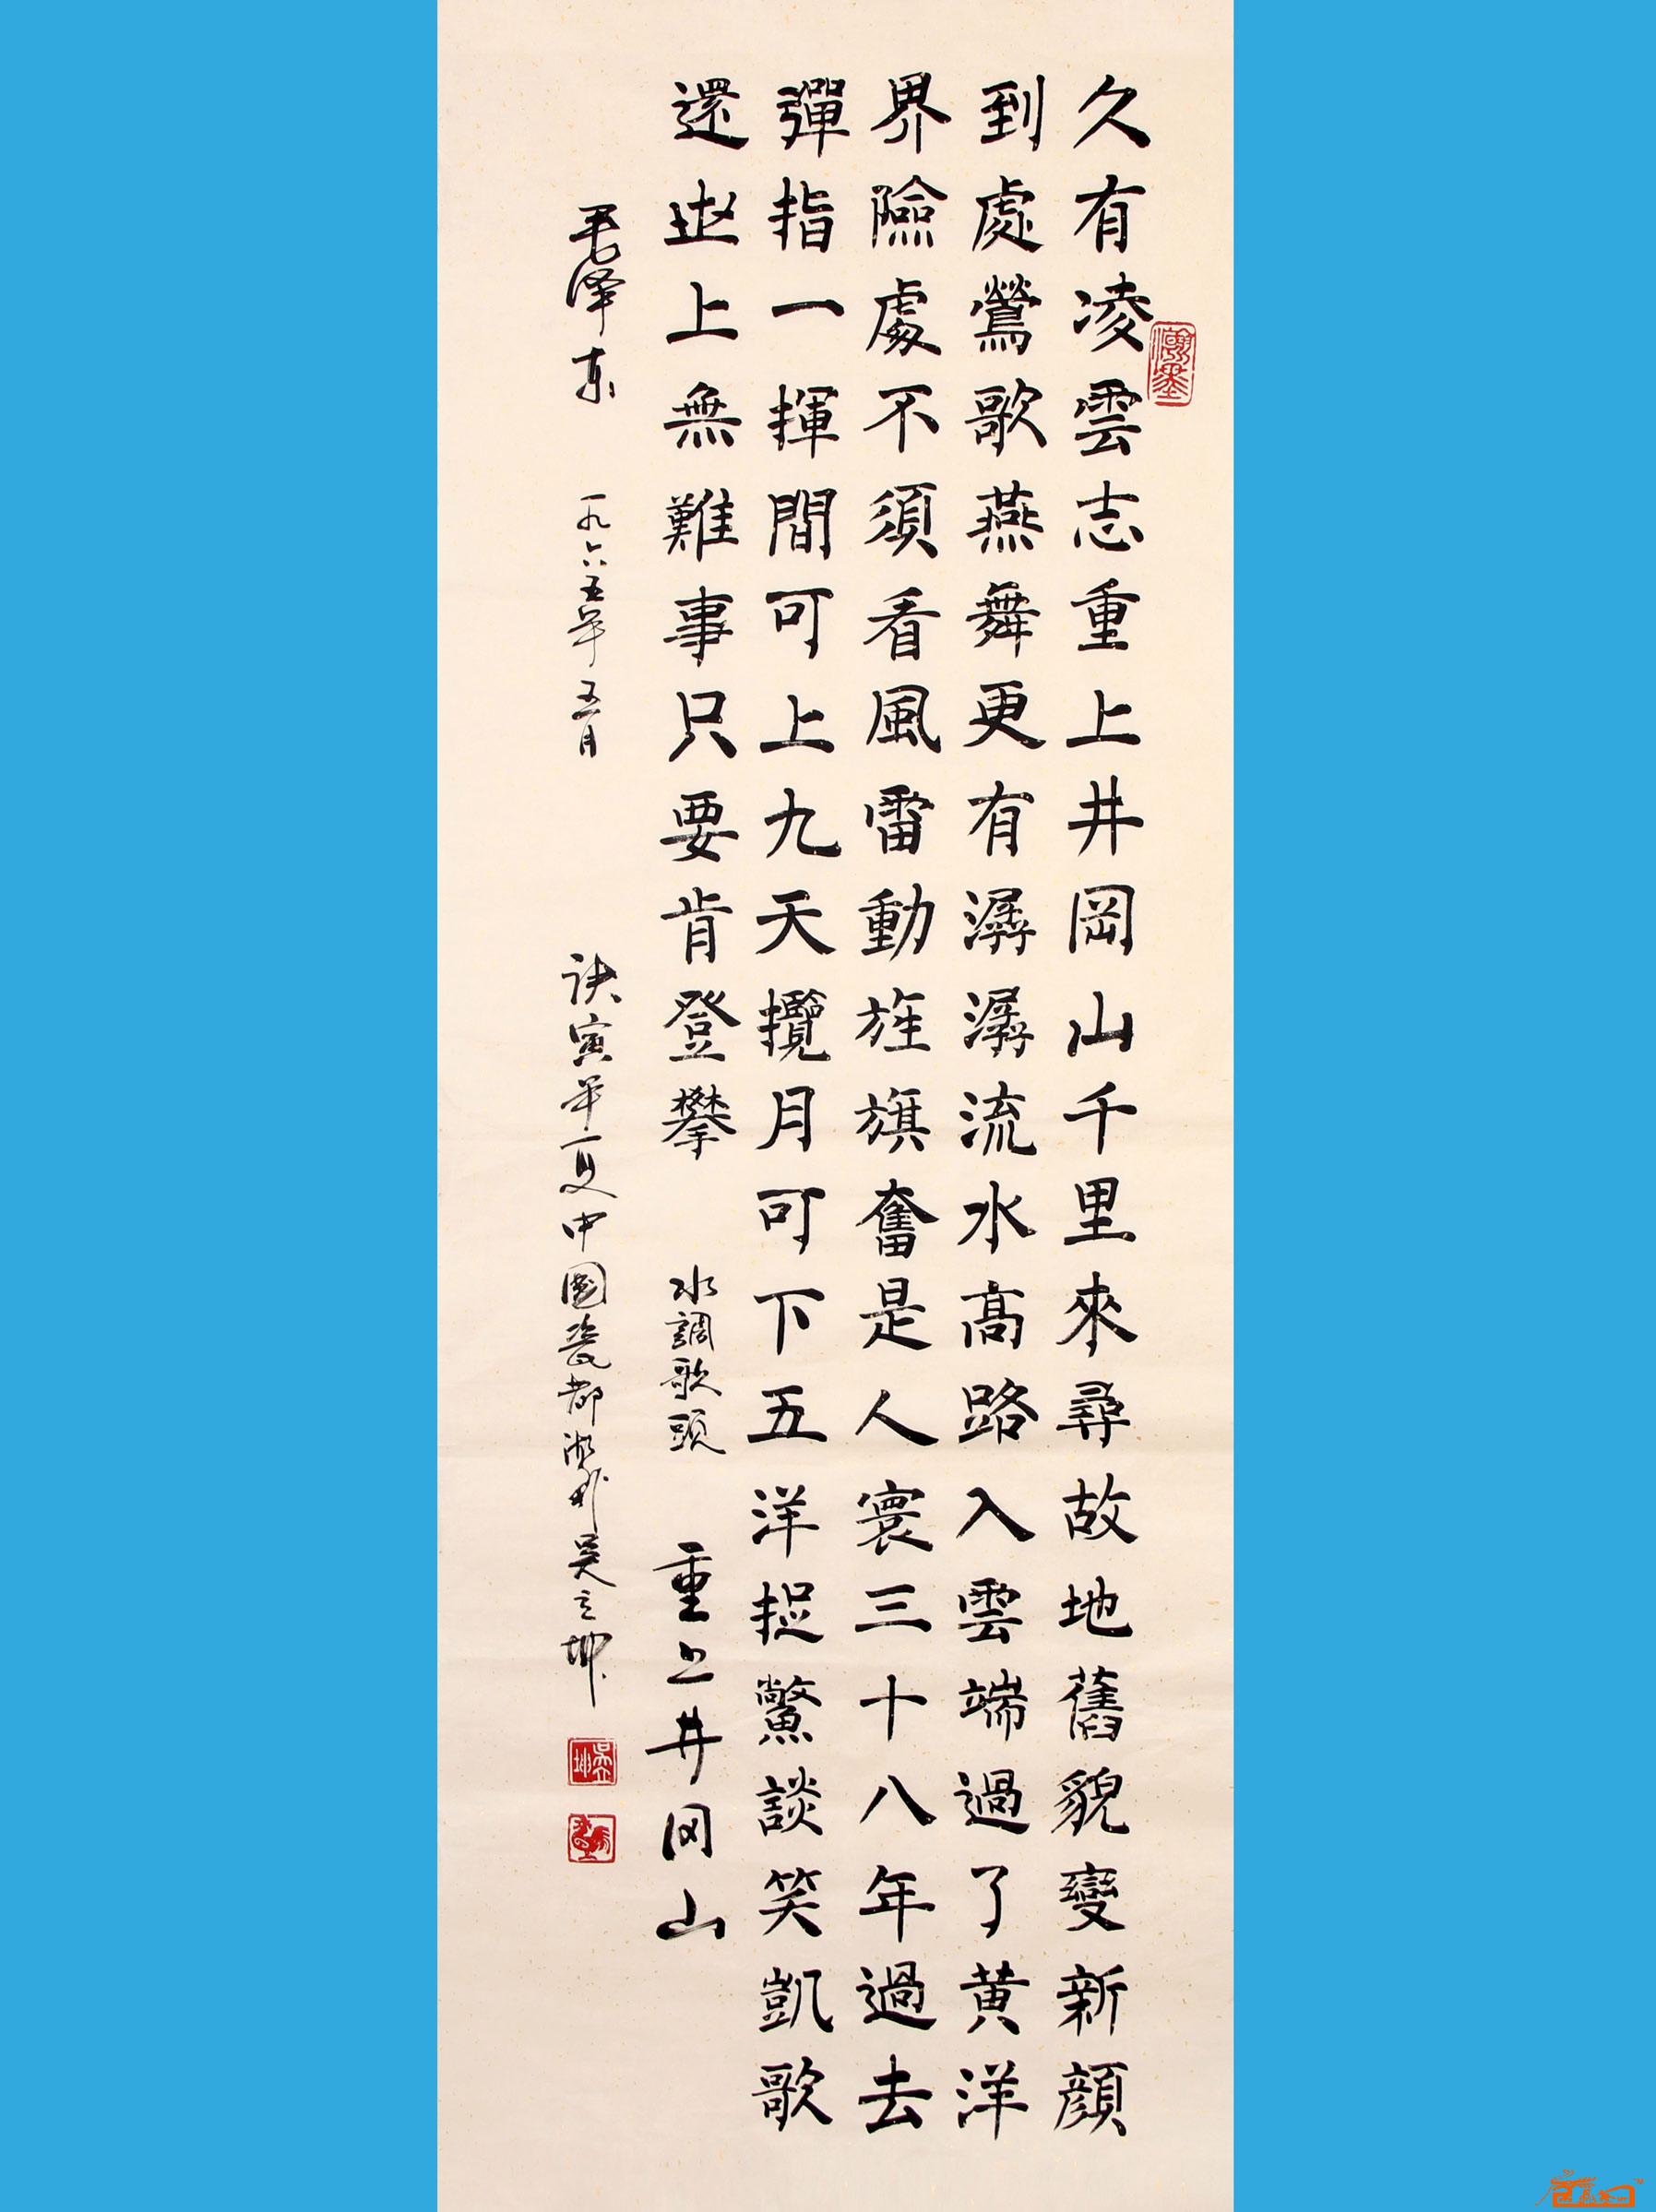 久有凌雲志重上井岡山千里來尋故地舊貌變新顔
到處鶯歌燕舞更有潺潺流水高路入雲端過了黄洋
界險處不須看風雷動旌旗奮是人寰三十八年過去
彈指一揮間可上九天攬月可下五洋捉鱉談笑凱歌
還世上無難事只要肯登攀 水調歌頭 重上井冈山
毛泽东 一九六五年五月 寅年夏中國瓷都潮州吴立坤
翰墨